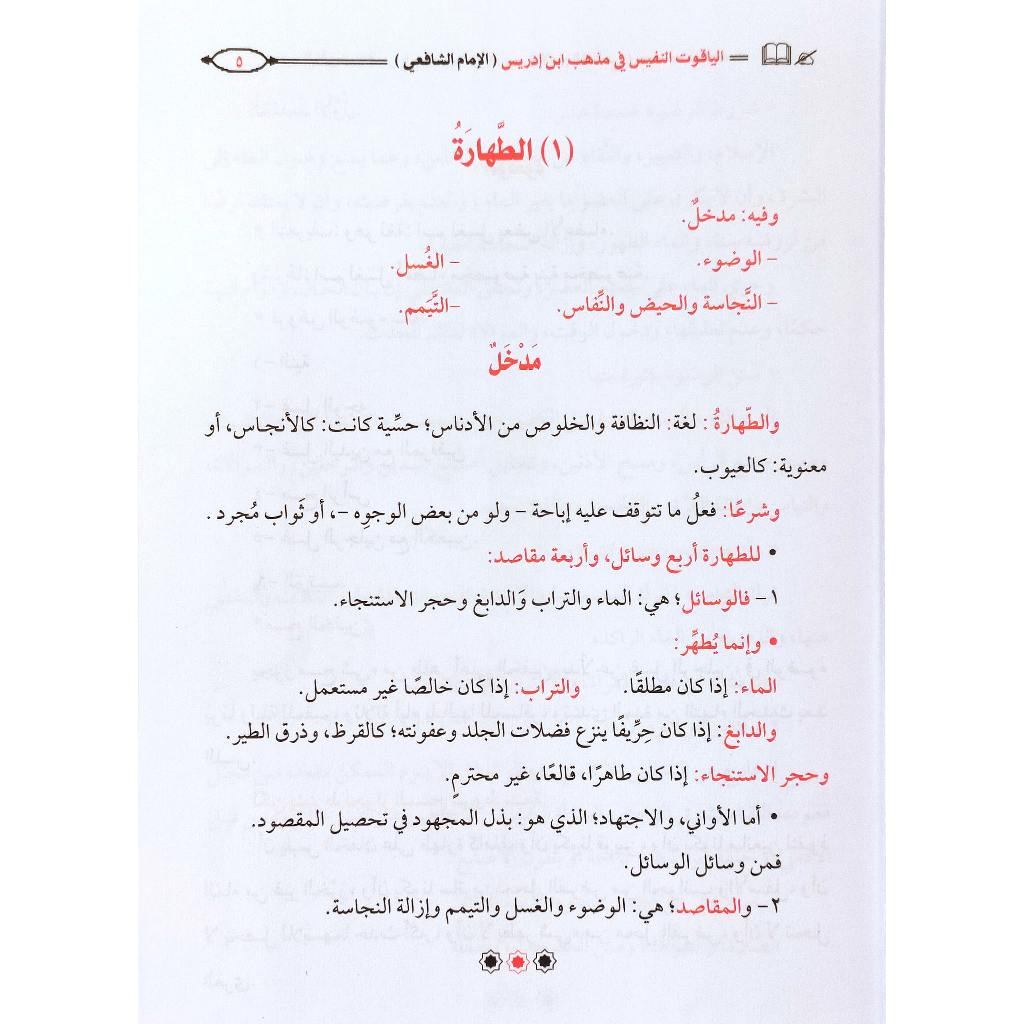 الياقوت النفيس في مذهب ابن إدريس ( الإمام الشافعي ) ٥
(١) الطَّهارَةُ
وفيه: مدخلٌ.
– الوضوء. – الغُسل.
– النَّجاسة والحيض والنِّفاس. –التَّيَمم.
مَدْخَلٌ
والطّهارةُ : لغة: النظافة والخلوص من الأدناس؛ حسِّية كانت: كالأنجاس، أو
معنوية: كالعيوب.
وشرعًا: فعلُ ما تتوقف عليه إباحة – ولو من بعض الوجوِه –، أو ثَواب مُجرد .
• للطهارة أربع وسائل، وأربعة مقاصد:
١– فالوسائل؛ هي: الماء والتراب وَالدابغ وحجر الاستنجاء.
• وإنما يُطهِّر:
الماء: إذا كان مطلقًا. والتراب: إذا كان خالصًا غير مستعمل.
والدابغ: إذا كان حِرِّيفًا ينزع فضلات الجلد وعفونته؛ كالقرظ، وذرق الطير.
وحجر الاستنجاء: إذا كان طاهرًا، قالعًا، غير محترمٍ.
• أما الأواني، والاجتهاد؛ الذي هو: بذل المجهود في تحصيل المقصود.
فمن وسائل الوسائل.
٢– والمقاصد؛ هي: الوضوء والغسل والتيمم وإزالة النجاسة.